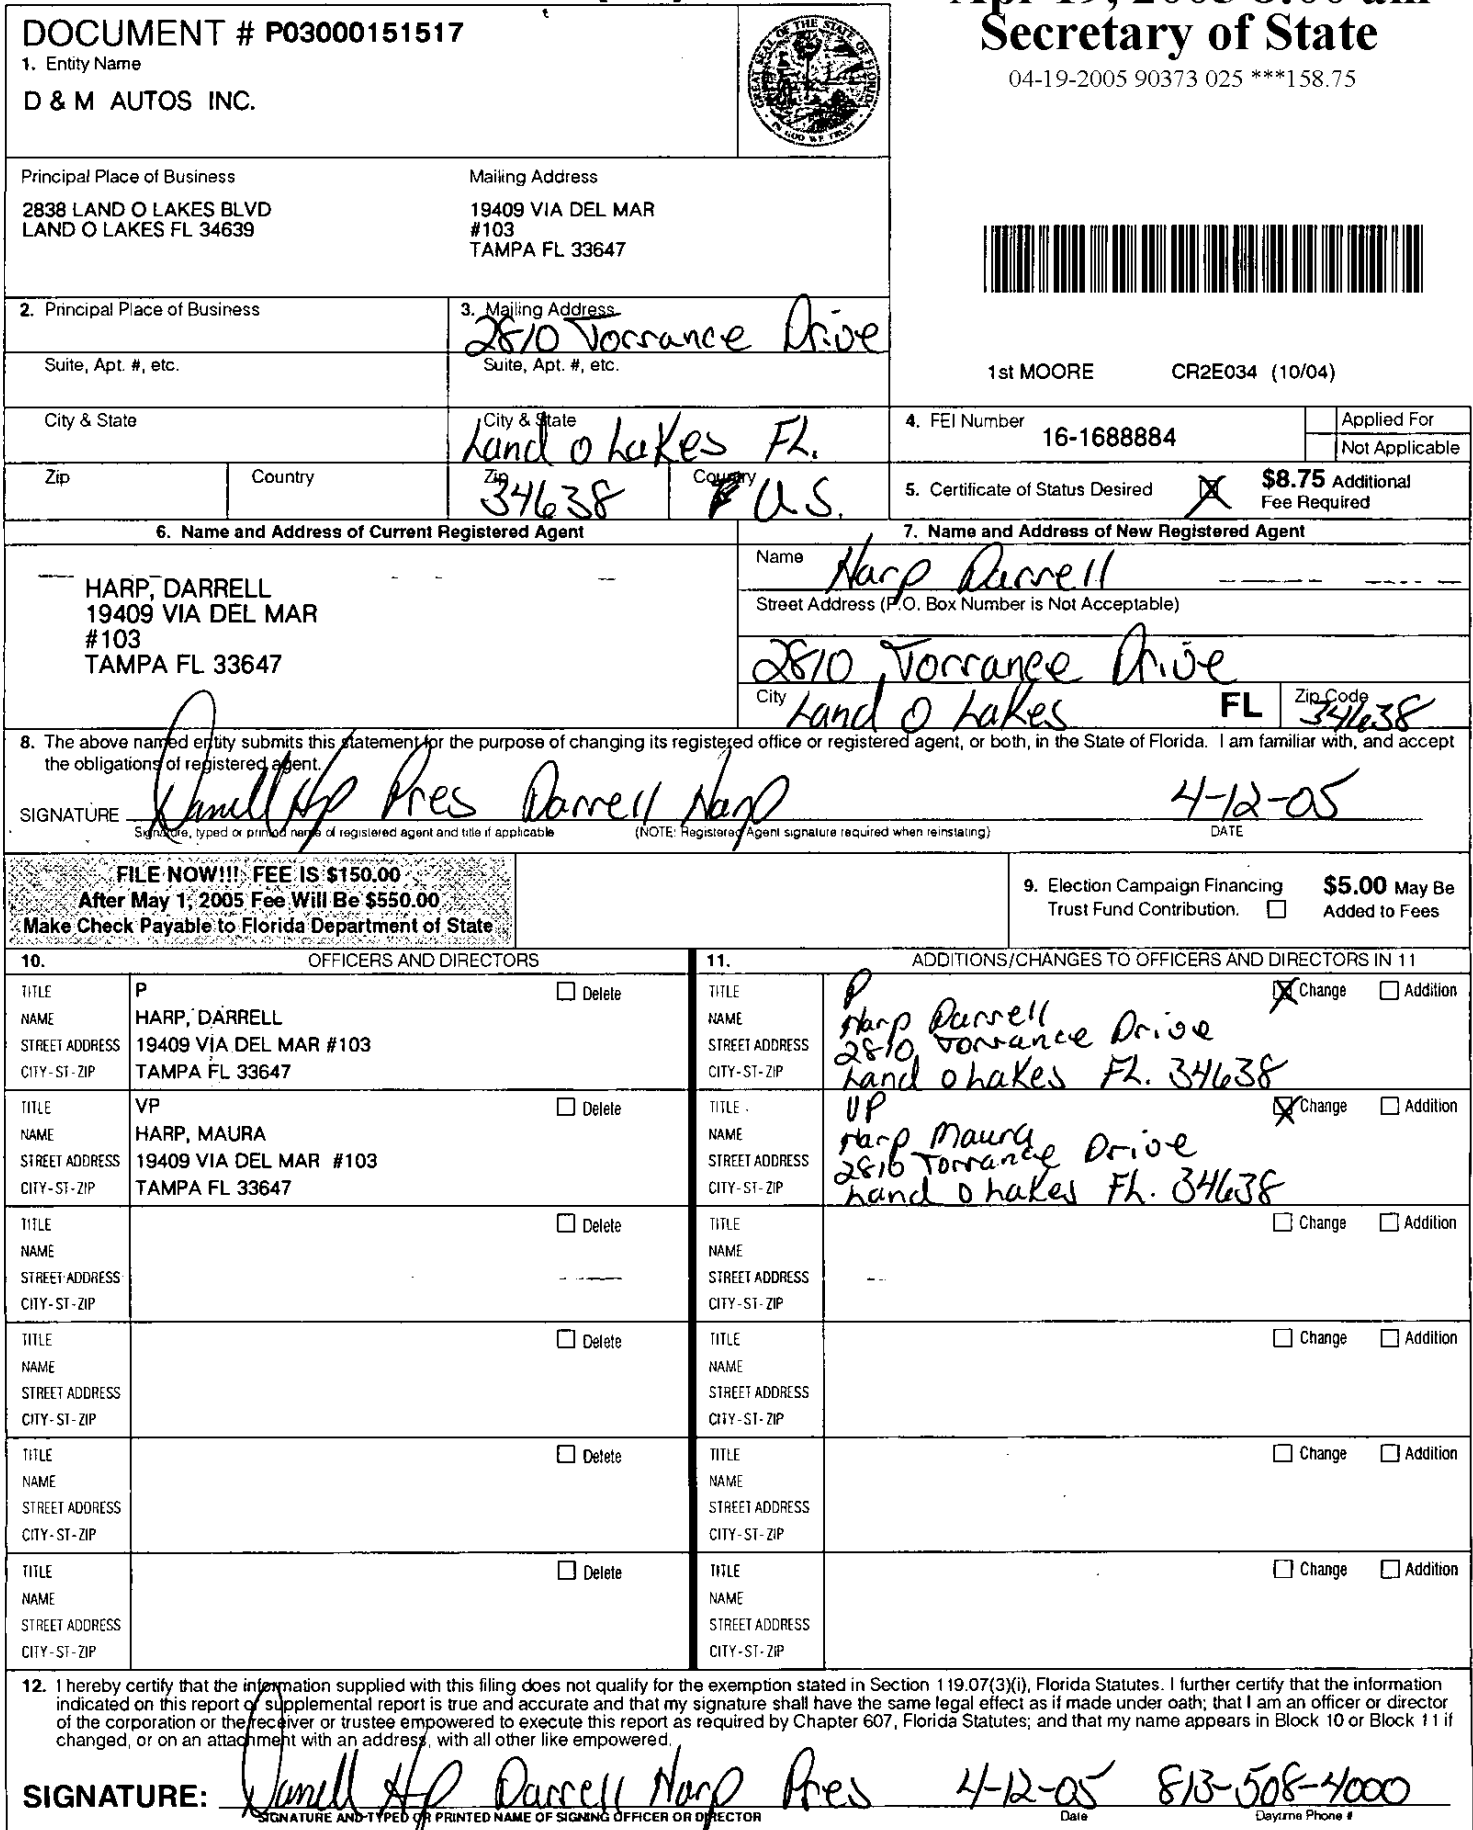 Secretary of State
04-19-2005 90373 025 ***158.75
DOCUMENT # P03000151517
1. Entity Name
D & M AUTOS INC.
GREAT SEAL OF THE STATE OF FLORIDA
IN GOD WE TRUST
Principal Place of Business
2838 LAND O LAKES BLVD
LAND O LAKES FL 34639
Mailing Address
19409 VIA DEL MAR
#103
TAMPA FL 33647
2. Principal Place of Business
3. Mailing Address
2810 Torrance Drive
Suite, Apt. #, etc.
Suite, Apt. #, etc.
1st MOORE CR2E034 (10/04)
City & State
City & State
Land O Lakes FL.
4. FEI Number
16-1688884
Applied For
Not Applicable
Zip
Country
Zip
34638
Country
U.S.
5. Certificate of Status Desired X
$8.75 Additional
Fee Required
6. Name and Address of Current Registered Agent
HARP, DARRELL
19409 VIA DEL MAR
#103
TAMPA FL 33647
7. Name and Address of New Registered Agent
Name Harp Darrell
Street Address (P.O. Box Number is Not Acceptable)
2810 Torrance Drive
City Land O Lakes FL Zip Code 34638
8. The above named entity submits this statement for the purpose of changing its registered office or registered agent, or both, in the State of Florida. I am familiar with, and accept
the obligations of registered agent.
SIGNATURE Darrell Harp Pres Darrell Harp 4-12-05
Signature, typed or printed name of registered agent and title if applicable (NOTE: Registered Agent signature required when reinstating) DATE
FILE NOW!!! FEE IS $150.00
After May 1, 2005 Fee Will Be $550.00
Make Check Payable to Florida Department of State
9. Election Campaign Financing
Trust Fund Contribution.
$5.00 May Be
Added to Fees
10. OFFICERS AND DIRECTORS
TITLE P Delete
NAME HARP, DARRELL
STREET ADDRESS 19409 VIA DEL MAR #103
CITY-ST-ZIP TAMPA FL 33647
TITLE VP Delete
NAME HARP, MAURA
STREET ADDRESS 19409 VIA DEL MAR #103
CITY-ST-ZIP TAMPA FL 33647
TITLE Delete
NAME
STREET ADDRESS
CITY-ST-ZIP
TITLE Delete
NAME
STREET ADDRESS
CITY-ST-ZIP
TITLE Delete
NAME
STREET ADDRESS
CITY-ST-ZIP
TITLE Delete
NAME
STREET ADDRESS
CITY-ST-ZIP
11. ADDITIONS/CHANGES TO OFFICERS AND DIRECTORS IN 11
TITLE P X Change Addition
NAME Harp Darrell
STREET ADDRESS 2810 Torrance Drive
CITY-ST-ZIP Land O Lakes FL. 34638
TITLE VP X Change Addition
NAME Harp Maura
STREET ADDRESS 2810 Torrance Drive
CITY-ST-ZIP Land O Lakes FL. 34638
TITLE Change Addition
NAME
STREET ADDRESS
CITY-ST-ZIP
TITLE Change Addition
NAME
STREET ADDRESS
CITY-ST-ZIP
TITLE Change Addition
NAME
STREET ADDRESS
CITY-ST-ZIP
TITLE Change Addition
NAME
STREET ADDRESS
CITY-ST-ZIP
12. I hereby certify that the information supplied with this filing does not qualify for the exemption stated in Section 119.07(3)(i), Florida Statutes. I further certify that the information
indicated on this report or supplemental report is true and accurate and that my signature shall have the same legal effect as if made under oath; that I am an officer or director
of the corporation or the receiver or trustee empowered to execute this report as required by Chapter 607, Florida Statutes; and that my name appears in Block 10 or Block 11 if
changed, or on an attachment with an address, with all other like empowered.
SIGNATURE: Darrell Harp Darrell Harp Pres 4-12-05 813-508-4000
SIGNATURE AND TYPED OR PRINTED NAME OF SIGNING OFFICER OR DIRECTOR Date Daytime Phone #